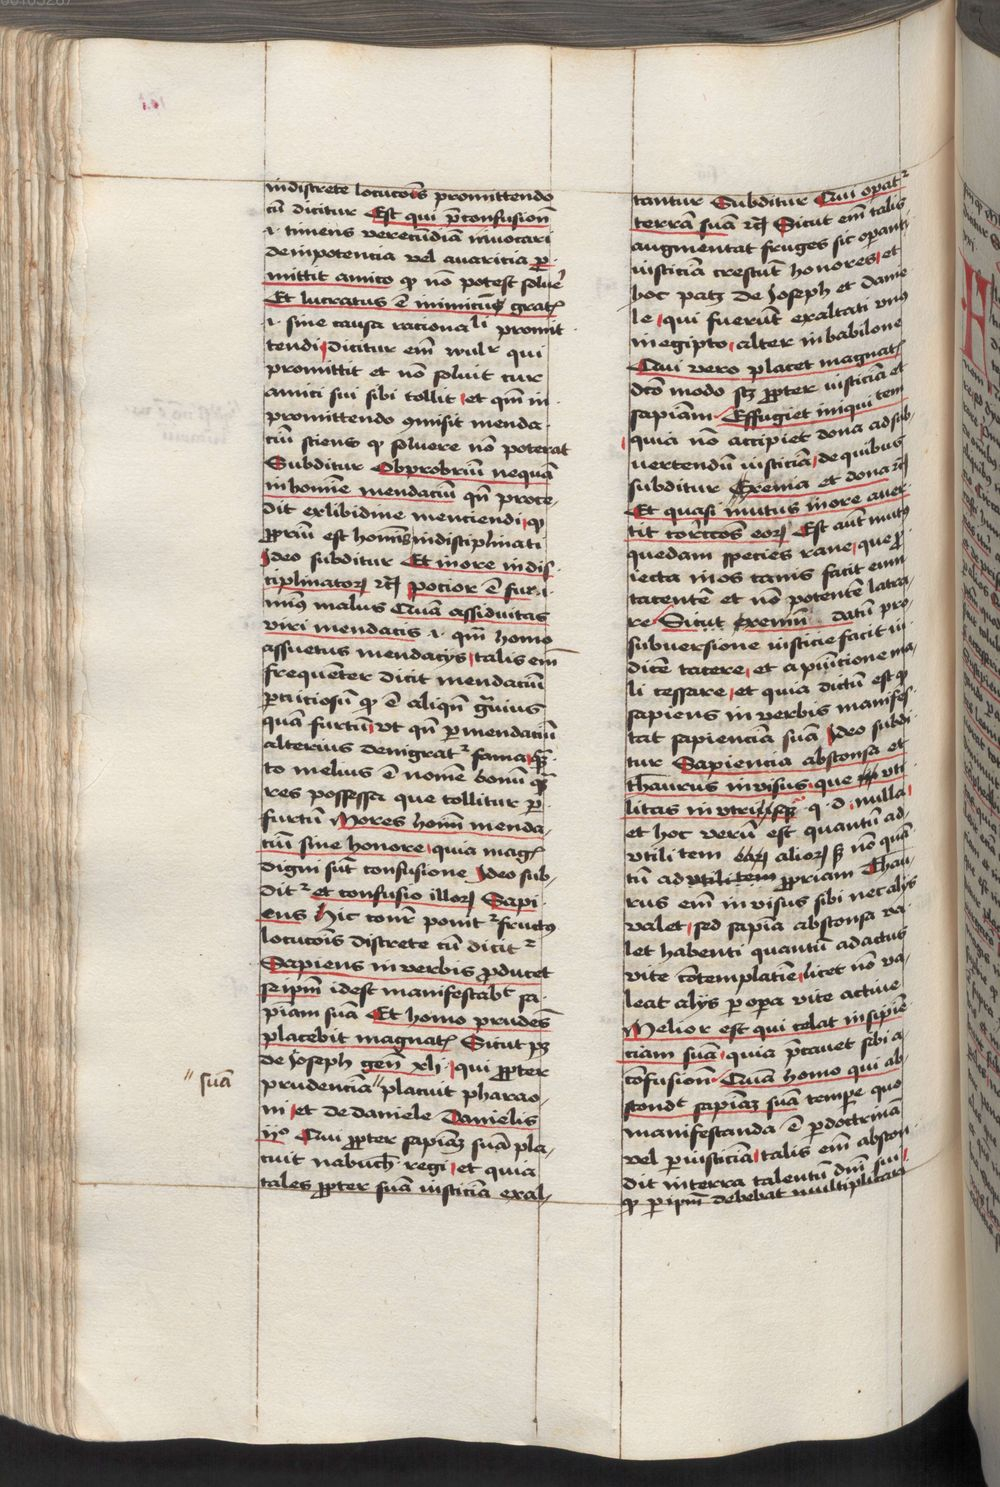 indistrete locucōis promittendo
cū dicitur Est qui p̄confusionē
.i. timens verecūdiā iīnvocari
de inpotencia vel avaritia p̲
mittit amico ꝙ nō potest solue͛
Et lucratus ē inimicū gratꝭ
.i. sine causa racionali promit
tendi dicitur em̄ wulr qui
promittit et nō soluit cur
amici sui sibi tollit et qm̄ in
promittendo ꝯmisit menda
ciū sciens ꝙ soluere nō poterat
Subditur Obprobriū nequā
in homīe mendaciū qn̄ proce
dit ex libidine menciendi ꝙ
ꝓpriū est homīs indisciplīnati
Ideo subditur Et in ore indis
ciplinatoꝝ ⁊cꝭ Pocior ē fur .i.
min9 malus Quā assiduitas
viri mendacis .i. qm̄ homo
assuetus mendacijs talis em̄
frequēter dicit mendaciū
ꝑniciosū ꝙ ē aliqn̄ gͣuius
quā furtū vt qn̄ ꝑ mendaciū
alterius denigratᷣ fama
to melius ē nomē bonū qͣ
res possessa que tollitur ꝑ
furtū Mores hom̄ menda
ciū sine honore quia magꝭ
digni sūt confusione Ideo sub
ditᷣ et confusio illoꝝ Sapi
ens Hic ponitᷣ fructꝰ
locucōis discrete cū dicitᷣ
Sapiens in verbis ꝓducet
seip̄m idest manifestabᵗ sa
piam suā Et homo prudēs
placebit magnatꝭ Sicut pꝫ
de Joseph gen̄ xli qui ꝓpter
prudenciā placuit pharao
ni et de daniele Danielis
ijº Qui ꝓpter sapiāꝫ suā pla
cuit nabuch̄ regi et quia
tales ꝓpter suā iusticiā exal
suā
tantur Subditur Qui opatᷣ
terrā suā ⁊cꝭ Sicut em̄ talis
augmentat fruges sic operanti
iusticiā crescūt honores et
hoc patꝫ de Joseph et danie
le qui fuerūt exaltati vnꝰ
in egipto alter in babilone
Qui vero placet magnatꝭ
dc̄o modo scꝫ ꝓpter iusticiā et
sapiam Effugiet iniqui tem
quia nō accipiet dona ad sub
uertendū iusticiā de quibus
subditur Exenia et dona ⁊cꝭ
Et quasi mutus in ore auer
tit correc̄cōes eoꝝ Est aut̄ mutꝰ
quedam species rane que ꝓ
iecta in os canis facit eum
tacentē et nō potentē latra
re Sicut exenium datū pro
subuersione iusticie facit iu
dicē tacere et a punicione ma
li cessare et quia dictū est ꝙ
sapiens in verbis manifes
tat sapienciā suā Ideo subdi
tur Sapiencia absconsa et
thesaurus invisus que vti
litas in utrisqꝫ q. d. nulla
et hoc verū est quantū ad
vtili tem alioꝝ sꝫ nō quā
tū ad vtili tem ꝓpriam Thau
rus em̄ invisus sibi nec alijs
valet sed sapīa absconsa va
let habenti quantū ad actus
vite cōtemplatiue licet nō va
leat alijs ꝑ opa vite actiue
Melior est qui celat insipiē
ciam suā quia p̄cauet sibi a
cōfusione Quā homo qui ab
scondᵗ sapiāꝫ suā tempe quo
manifestanda ē ꝑ doctrinā
vel ꝑ iusticiā talis em̄ abscon
dit in terra talentū dn̄i sui
ꝙ ꝑ ip̄m debebat multiplicari